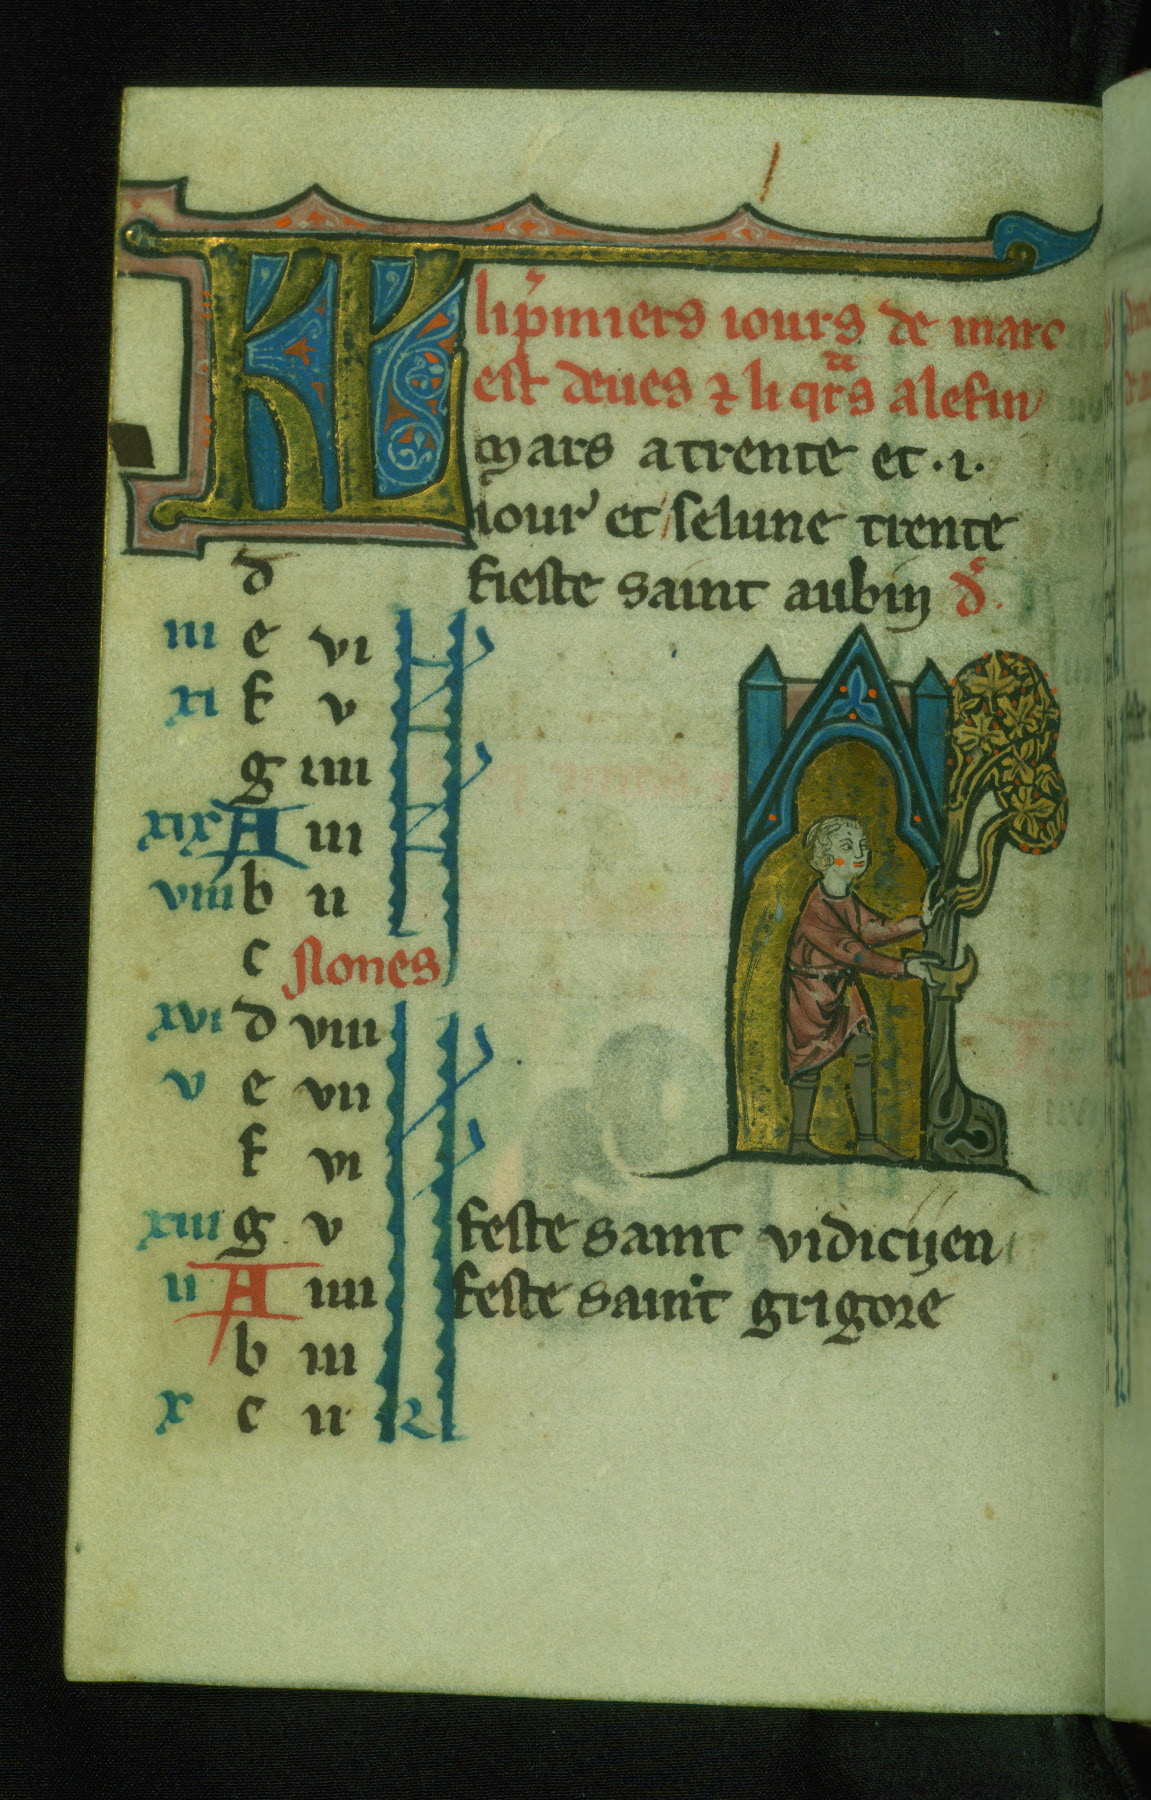 KL
lip̄miers iours de marc
est deues ⁊ li qrͣs alefin
mars atrente et · i ·
iour et selune trente
d feste saint aubin d̾.
iii e vi
xi f v
g iiii
xix A iii
viii b ii
c nones
xvi d viii
v e vii
f vi
xiii g v feste saint
ii A iiii feste saint grigore
b iii
x c ii